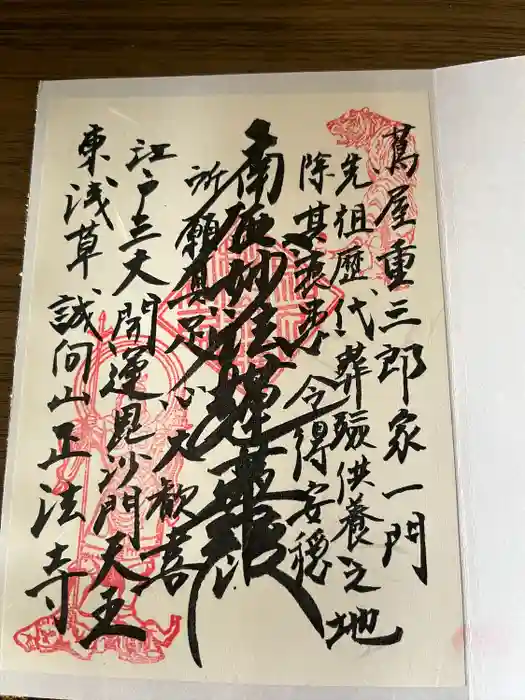 蔦屋重三郎家一門
先祖歴代葬験供養之地
除其衰患令得安穏
南無妙法蓮華経
所願具足心大歓喜
江戸三大開運毘沙門天王
東浅草誠向山正法寺